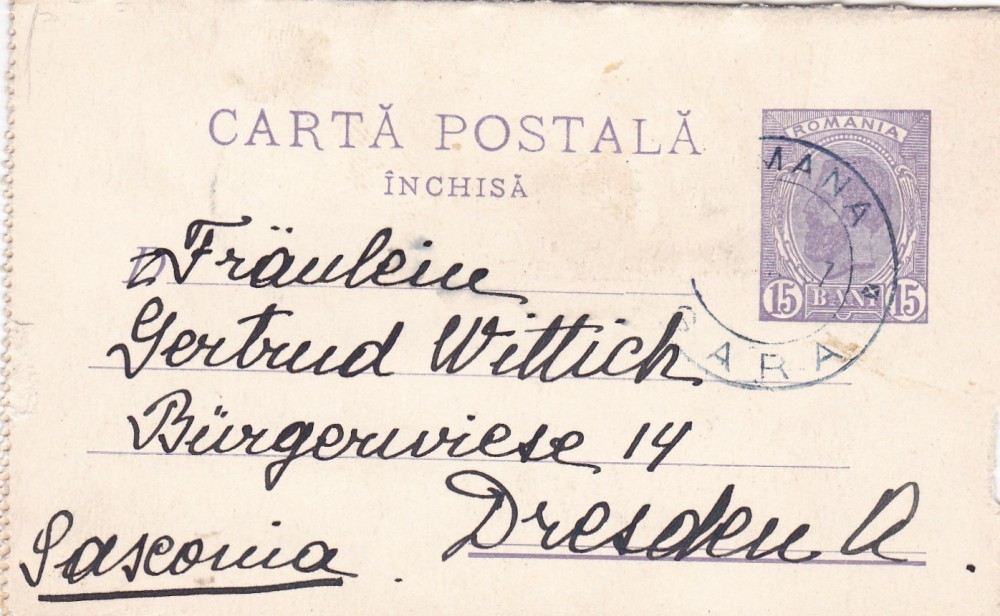 CARTĂ POSTALĂ
ÎNCHISĂ
ROMANIA
15 BANI 15
MANA
GARA
Fräulein
Gertrud Wittich
Bürgerwiese 14
Dresden A.
Sasconia